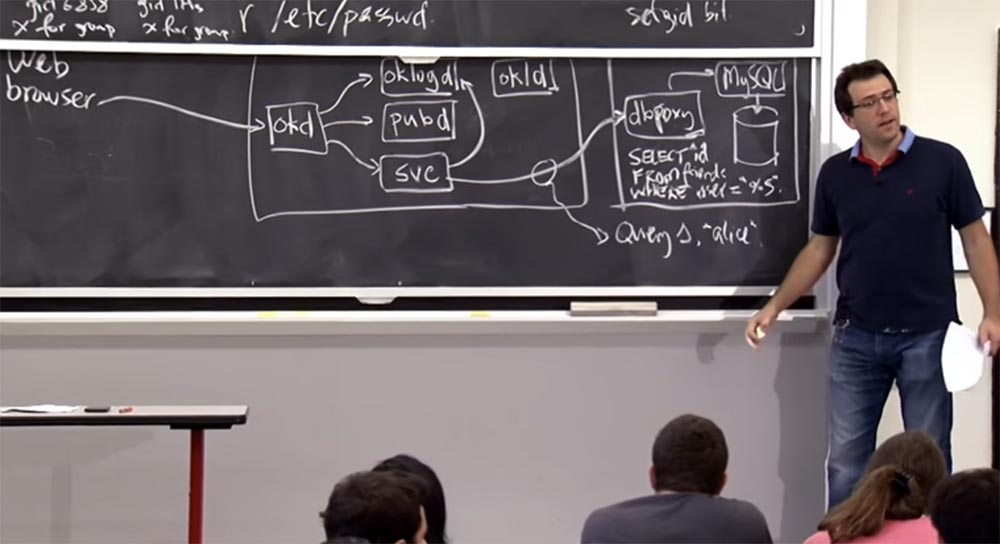 x for group x for group.
r /etc/passwd.
setgid bit.
web
browser
okd
oklogd
pubd
svc
okld
dbproxy
MySQL
SELECT id
FROM friends
WHERE user = "%s".
Query 1, "alice".